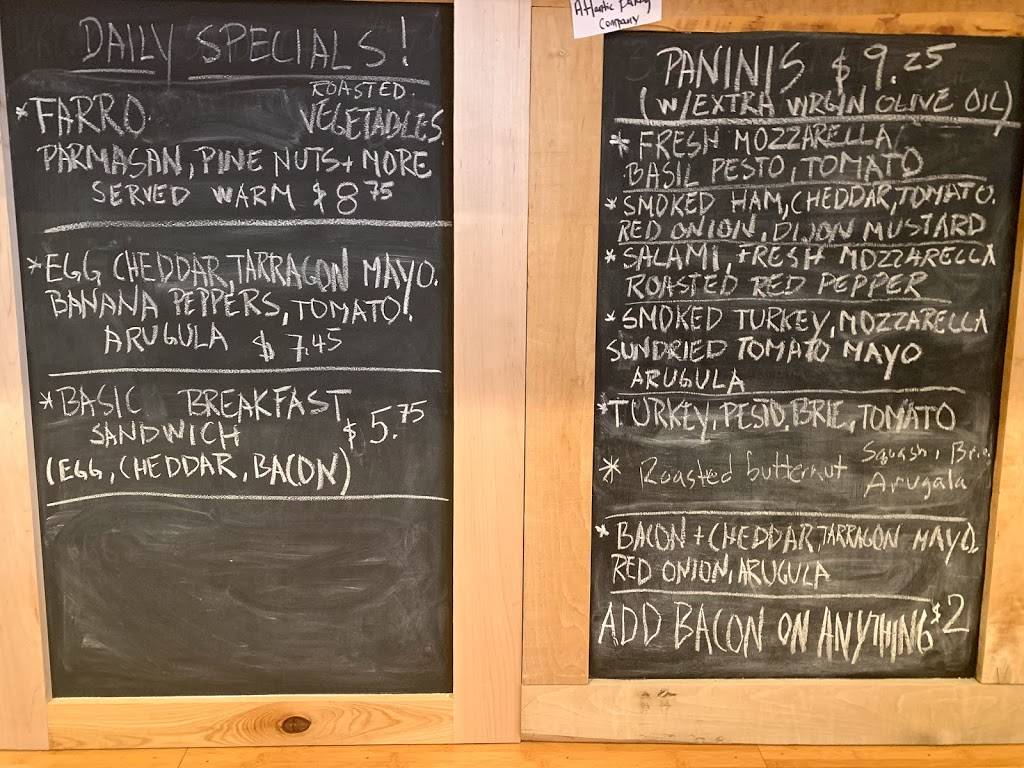 DAILY SPECIALS!
*FARRO ROASTED
VEGETABLES
PARMASAN, PINE NUTS + MORE
SERVED WARM $8.75
*EGG CHEDDAR, TARRAGON MAYO.
BANANA PEPPERS, TOMATO.
ARUGULA $7.45
*BASIC BREAKFAST
SANDWICH $5.75
(EGG, CHEDDAR, BACON)
Atlantic Baking
Company
PANINIS $9.25
(W/EXTRA VIRGIN OLIVE OIL)
*FRESH MOZZARELLA
BASIL PESTO, TOMATO
*SMOKED HAM, CHEDDAR, TOMATO.
RED ONION, DIJON MUSTARD
*SALAMI, FRESH MOZZARELLA
ROASTED RED PEPPER
*SMOKED TURKEY, MOZZARELLA
SUNDRIED TOMATO MAYO
ARUGULA
*TURKEY, PESTO, BRIE, TOMATO
* Roasted butternut Squash, Brie
Arugala
*BACON + CHEDDAR, TARRAGON MAYO,
RED ONION, ARUGULA
ADD BACON ON ANYTHING $2